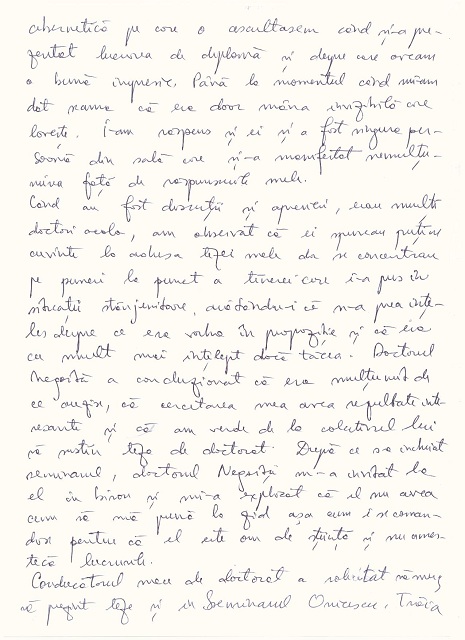 cibernetică pe care o ascultasem când și-a pre-
zentat lucrarea de diplomă și despre care aveam
o bună impresie. Până la momentul când mi-am
dat seama că era doar mâna invizibilă care
lovește. I-am răspuns și ei și a fost singura per-
soană din sală care și-a manifestat nemulțu-
mirea față de răspunsurile mele.
Când au fost discuții și aprecieri, erau mulți
doctori acolo, am observat că ei spuneau puține
cuvinte la adresa tezei mele dar se concentrau
pe puneri la punct a tinerei care i-a pus în
situații stânjenitoare, arătându-i că n-a prea înțe-
les despre ce era vorba în propoziție și că era
cu mult mai înțelept dacă tăcea. Doctorul
Negoiță a concluzionat că era mulțumit de
ce auzise, că cercetarea mea avea rezultate inte-
resante și că am verde de la colectivul lui
să susțin teza de doctorat. După ce s-a încheiat
seminarul, doctorul Negoiță m-a invitat la
el în birou și mi-a explicat că el nu avea
cum să mă pună la zid așa cum i se coman-
dase pentru că el este om de știință și nu ames-
tecă lucrurile.
Conducătorul meu de doctorat a solicitat să merg
să prezint teza și în Seminarul Onicescu. Trăia